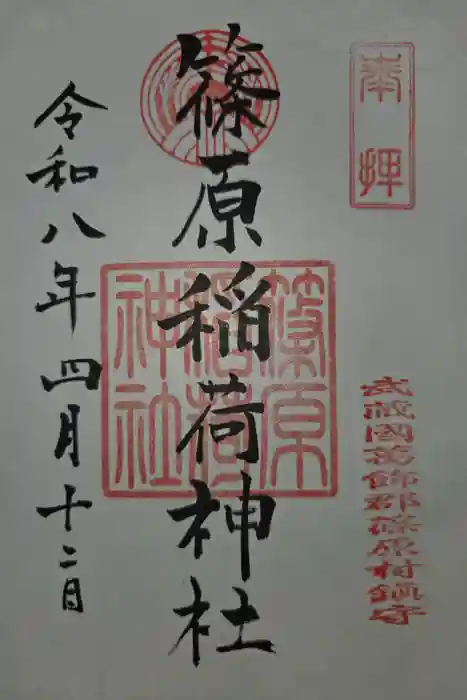 奉拝
武蔵國葛飾郡篠原村鎮守
篠原稲荷神社
篠原
稲荷
神社
令和八年四月十二日